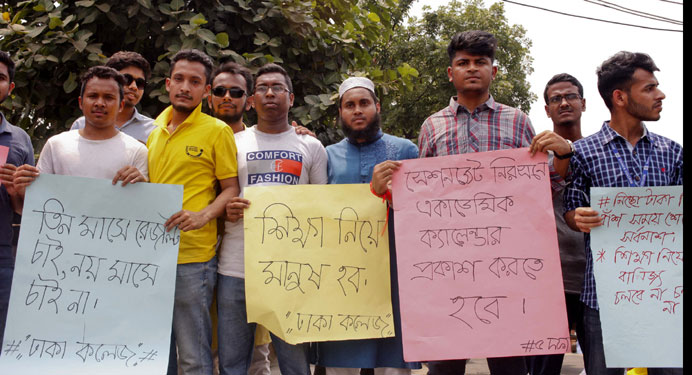 তিন মাসে রেজাল্ট
চাই, নয় মাসে
চাই না।
# "ঢাকা কলেজ" #
COMFORT
FASHION
শিক্ষা নিয়ে
মানুষ হব.
"ঢাকা কলেজ"
সেশনজট নিরসনে
একাডেমিক
ক্যালেন্ডার
প্রকাশ করতে
হবে।
#৫ দফা
# নিচ্ছে টাকা
সময় শে
সর্বনাশ।
* শিক্ষা নিয়ে
বাণিজ্য
চলবে না চল
না